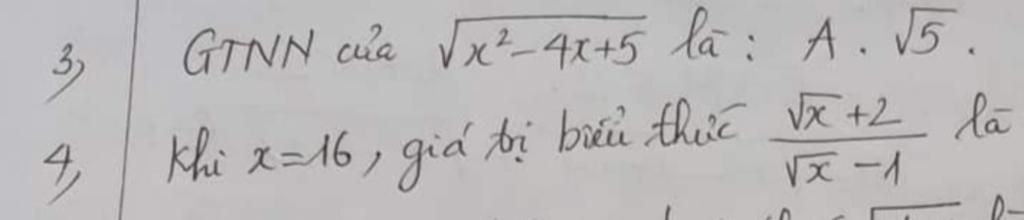 3) GTNN của √(x²-4x+5) là: A. √5.
4, Khi x=16, giá trị biểu thức (√x+2)/(√x-1) là